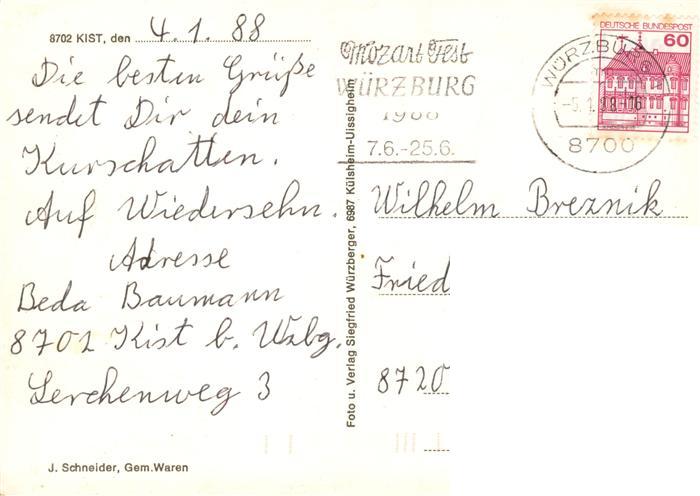 8702 KIST, den 4.1.88
Die besten Grüße
sendet Dir dein
Kurschatten.
Auf Wiedersehn.
Adresse
Beda Baumann
8702 Kist b. Wzbg.
Lerchenweg 3
J. Schneider, Gem.Waren
Foto u. Verlag Siegfried Würzberger, 6987 Külsheim-Uissigheim
Mozart Fest
WÜRZBURG
1988
7.6.-25.6.
WÜRZBURG
8700
DEUTSCHE BUNDESPOST
60
Wilhelm Breznik
Fried
8720